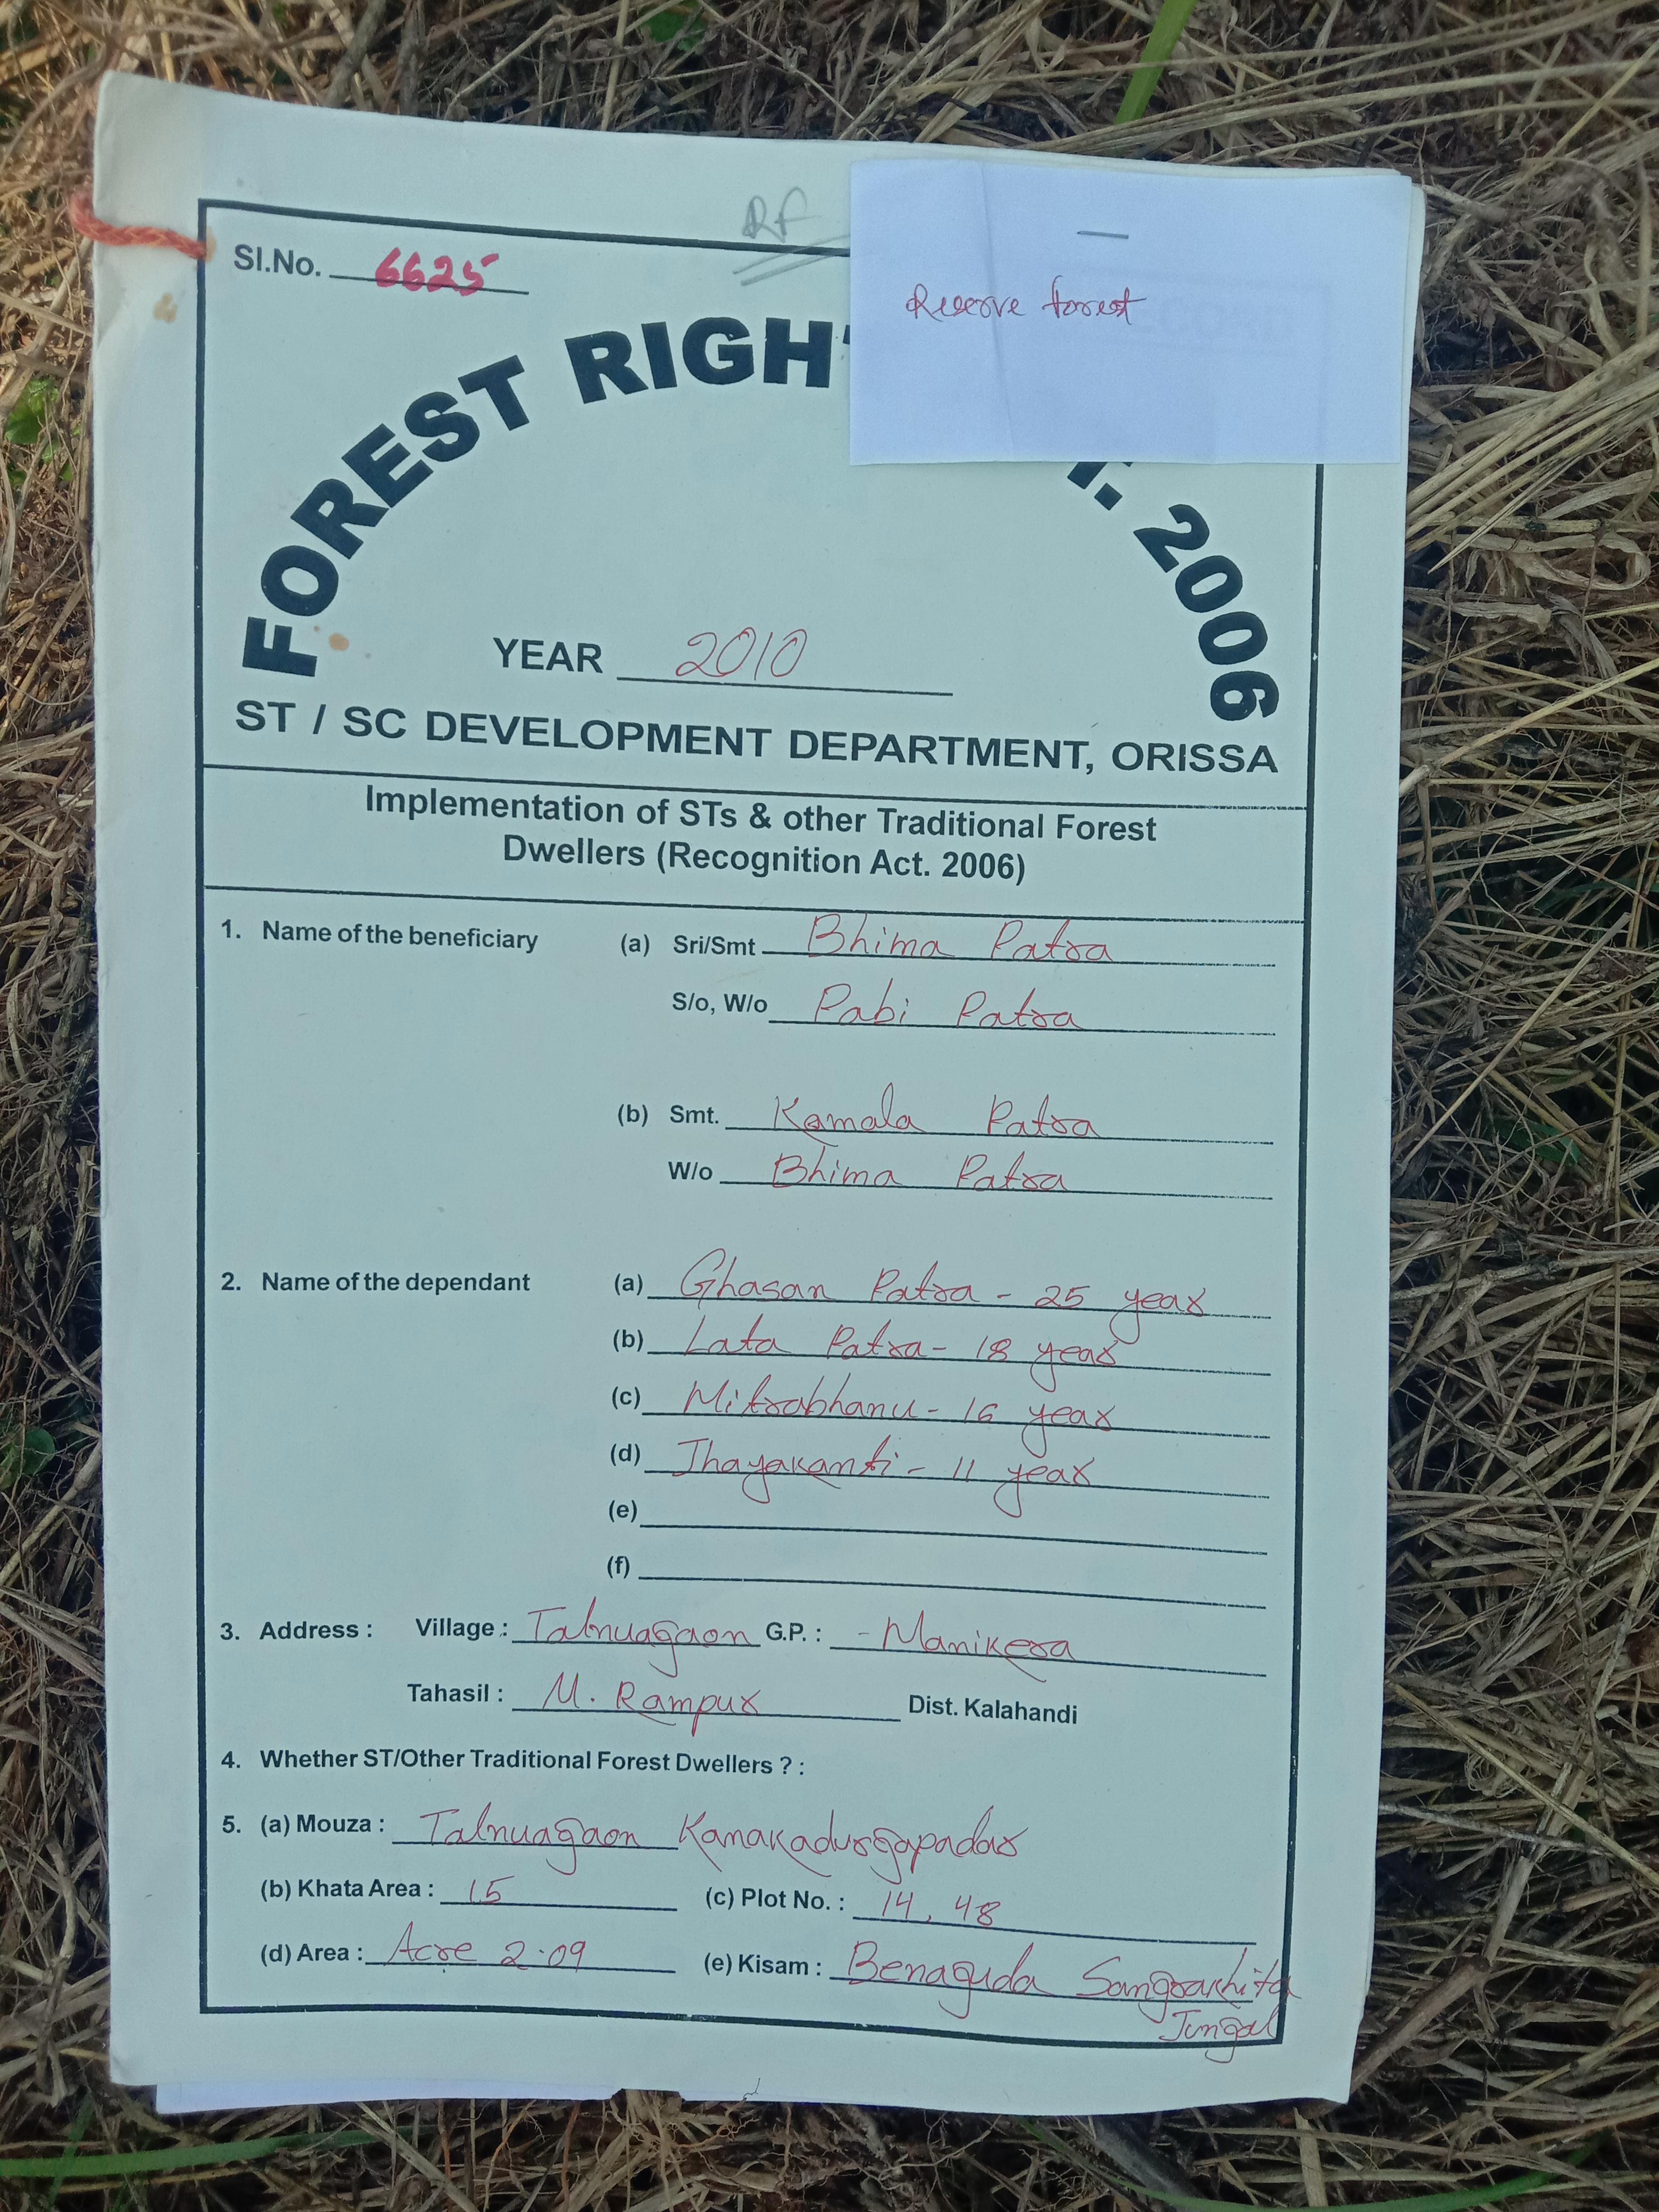 RF
Reserve forest
Sl.No. 6625
FOREST RIGH T. 2006
YEAR 2010
ST / SC DEVELOPMENT DEPARTMENT, ORISSA
Implementation of STs & other Traditional Forest
Dwellers (Recognition Act. 2006)
1. Name of the beneficiary (a) Sri/Smt Bhima Patra
S/o, W/o Pabi Patra
(b) Smt. Kamala Patra
W/o Bhima Patra
2. Name of the dependant (a) Ghasan Patra - 25 year
(b) Lata Patra - 18 year
(c) Mitrabhanu - 16 year
(d) Jhayakanti - 11 year
(e)
(f)
3. Address : Village : Talnuagaon G.P. : - Manikera
Tahasil : M. Rampur Dist. Kalahandi
4. Whether ST/Other Traditional Forest Dwellers ? :
5. (a) Mouza : Talnuagaon Kanakadurgapadar
(b) Khata Area : 15 (c) Plot No. : 14, 48
(d) Area : Acre 2.09 (e) Kisam : Benaguda Sangrakhita
Jungal